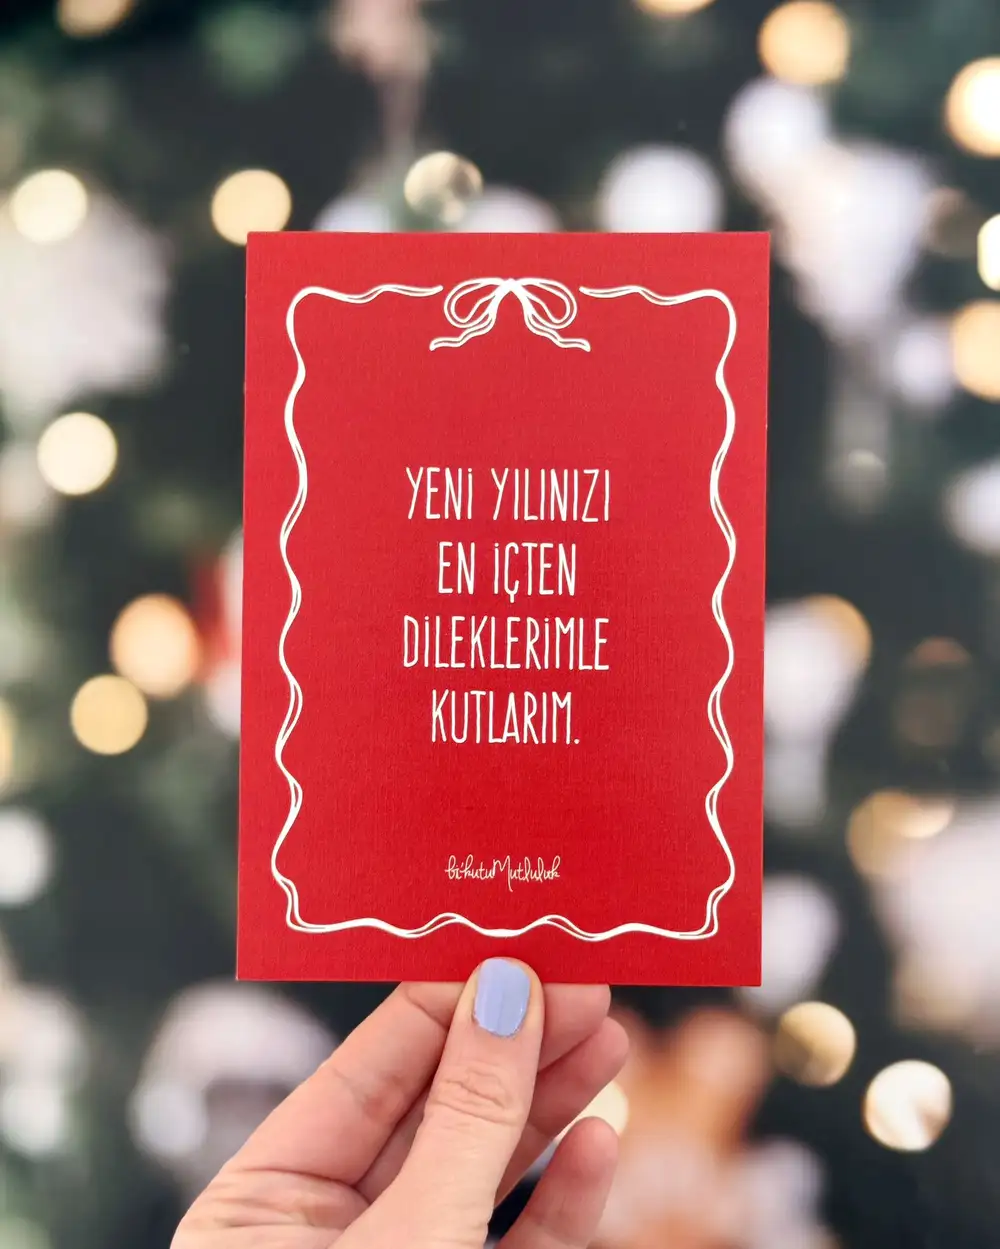 YENİ YILINIZI
EN İÇTEN
DİLEKLERİMLE
KUTLARIM.
bi'kutuMutluluk